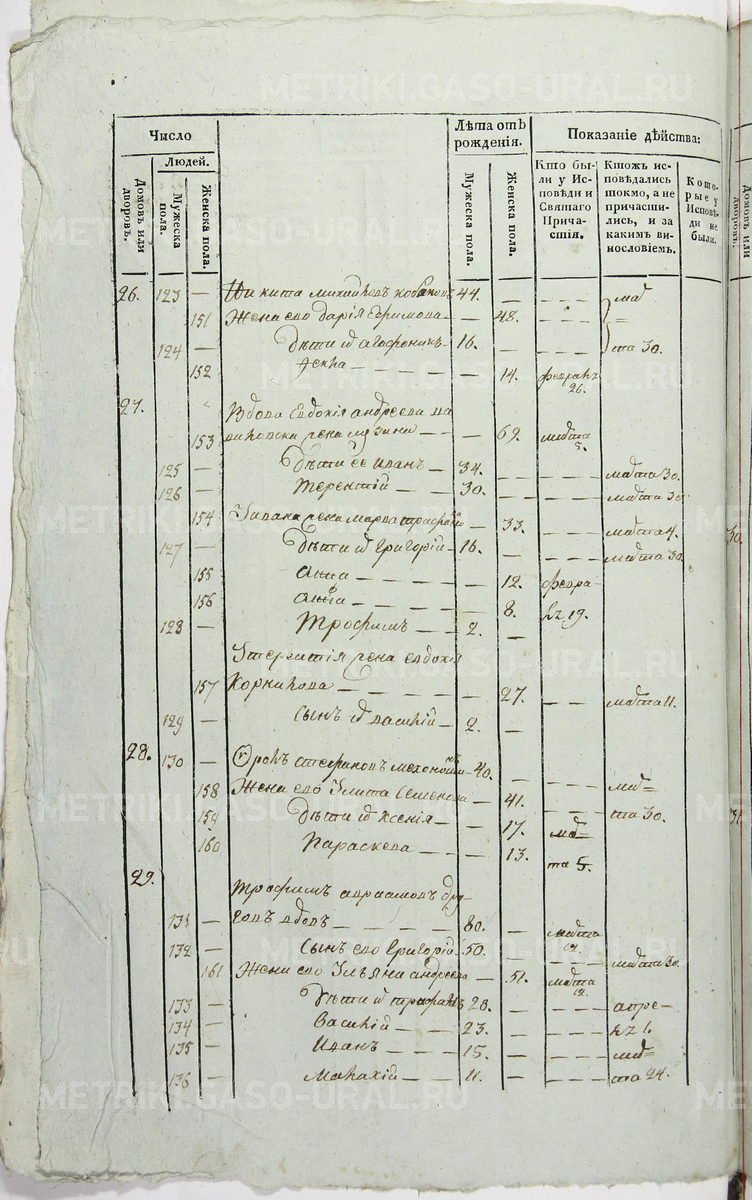 METRIKI.GASO-URAL.RU
Число
Людей.
Домовъ или дворовъ.
Мужеска пола.
Женска пола.
Лѣта отъ рожденія.
Мужеска пола.
Женска пола.
Показаніе дѣйства:
Кто были у Исповѣди и Святаго Причастія.
Ктожъ исповѣдались токмо, а не причастились, и за какимъ винословіемъ.
Которые у Исповѣди не были.
26. 123 — Никита 44. — — — — мар
151 Жена его Дарія Ефимова — — 48. — — — =
124 — Дѣти их Агафоникъ — 16. — — — — та 30.
152 — — — — — 14. февраля 26.
27. Вдова Евдокія Андреева
153 — — — 69. марта 5.
125 — Дѣти ее Иванъ — 34. — — — — марта 30.
126 — Терентій — — 30. — — — — марта 30
154 Ивана жена Марва — 33. — — — марта 4.
127 — Дѣти их Григорій — 16. — — — — марта 30
155 Анна — — — — — 12. февра
156 Анна — — — — — 8. ля 19.
128 — Трофимъ — — 2. —
Терентія жена Евдокія
157 Корнилова — — — — — 27. — — марта 11.
129 — Сынъ их Василій — 2. —
28. 130 — Фролъ Стефановъ 40. — — — —
158 Жена его Улита Семенова — — 41. — — — мар=
159 Дѣти их Ксенія — — — 17. мар= та 30.
160 Параскева — — — — 13. та 5.
29. Трофимъ Авраамовъ
131 — вдовъ — — — — 80. — марта
132 — Сынъ его Григорій 50. — — — — марта 30.
161 Жена его Ульяна Андреева — — 51. марта 12.
133 — Дѣти их 28. — — — — апре-
134 — Василій — — 23. — — — — ля 1.
135 — Иванъ — — — 15. — — — — мар=
136 — Малахій — — 11. — — — — та 24.